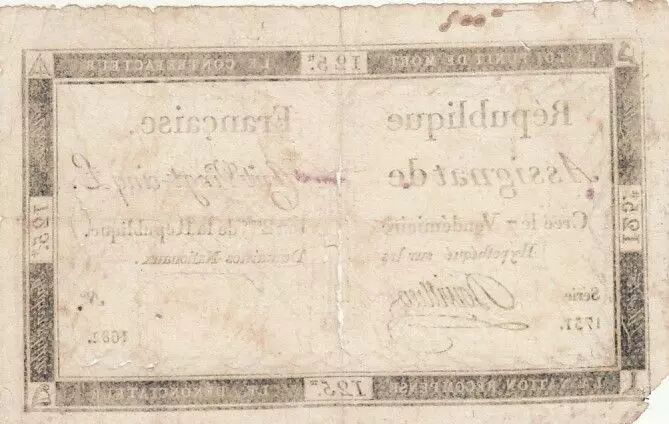 LA LOI PUNIT DE MORT 125.ᵗᵗ LE CONTREFACTEUR
République Française.
Assignat de Cent Vingt-cinq L.
Créé le 7 Vendémiaire l'an 2.me de la République.
Hypothéqué sur les Domaines Nationaux.
Série
1751.
N.°
1682.
125.ᵗᵗ
125.ᵗᵗ
LA NATION RÉCOMPENSE 125.ᵗᵗ LE DÉNONCIATEUR